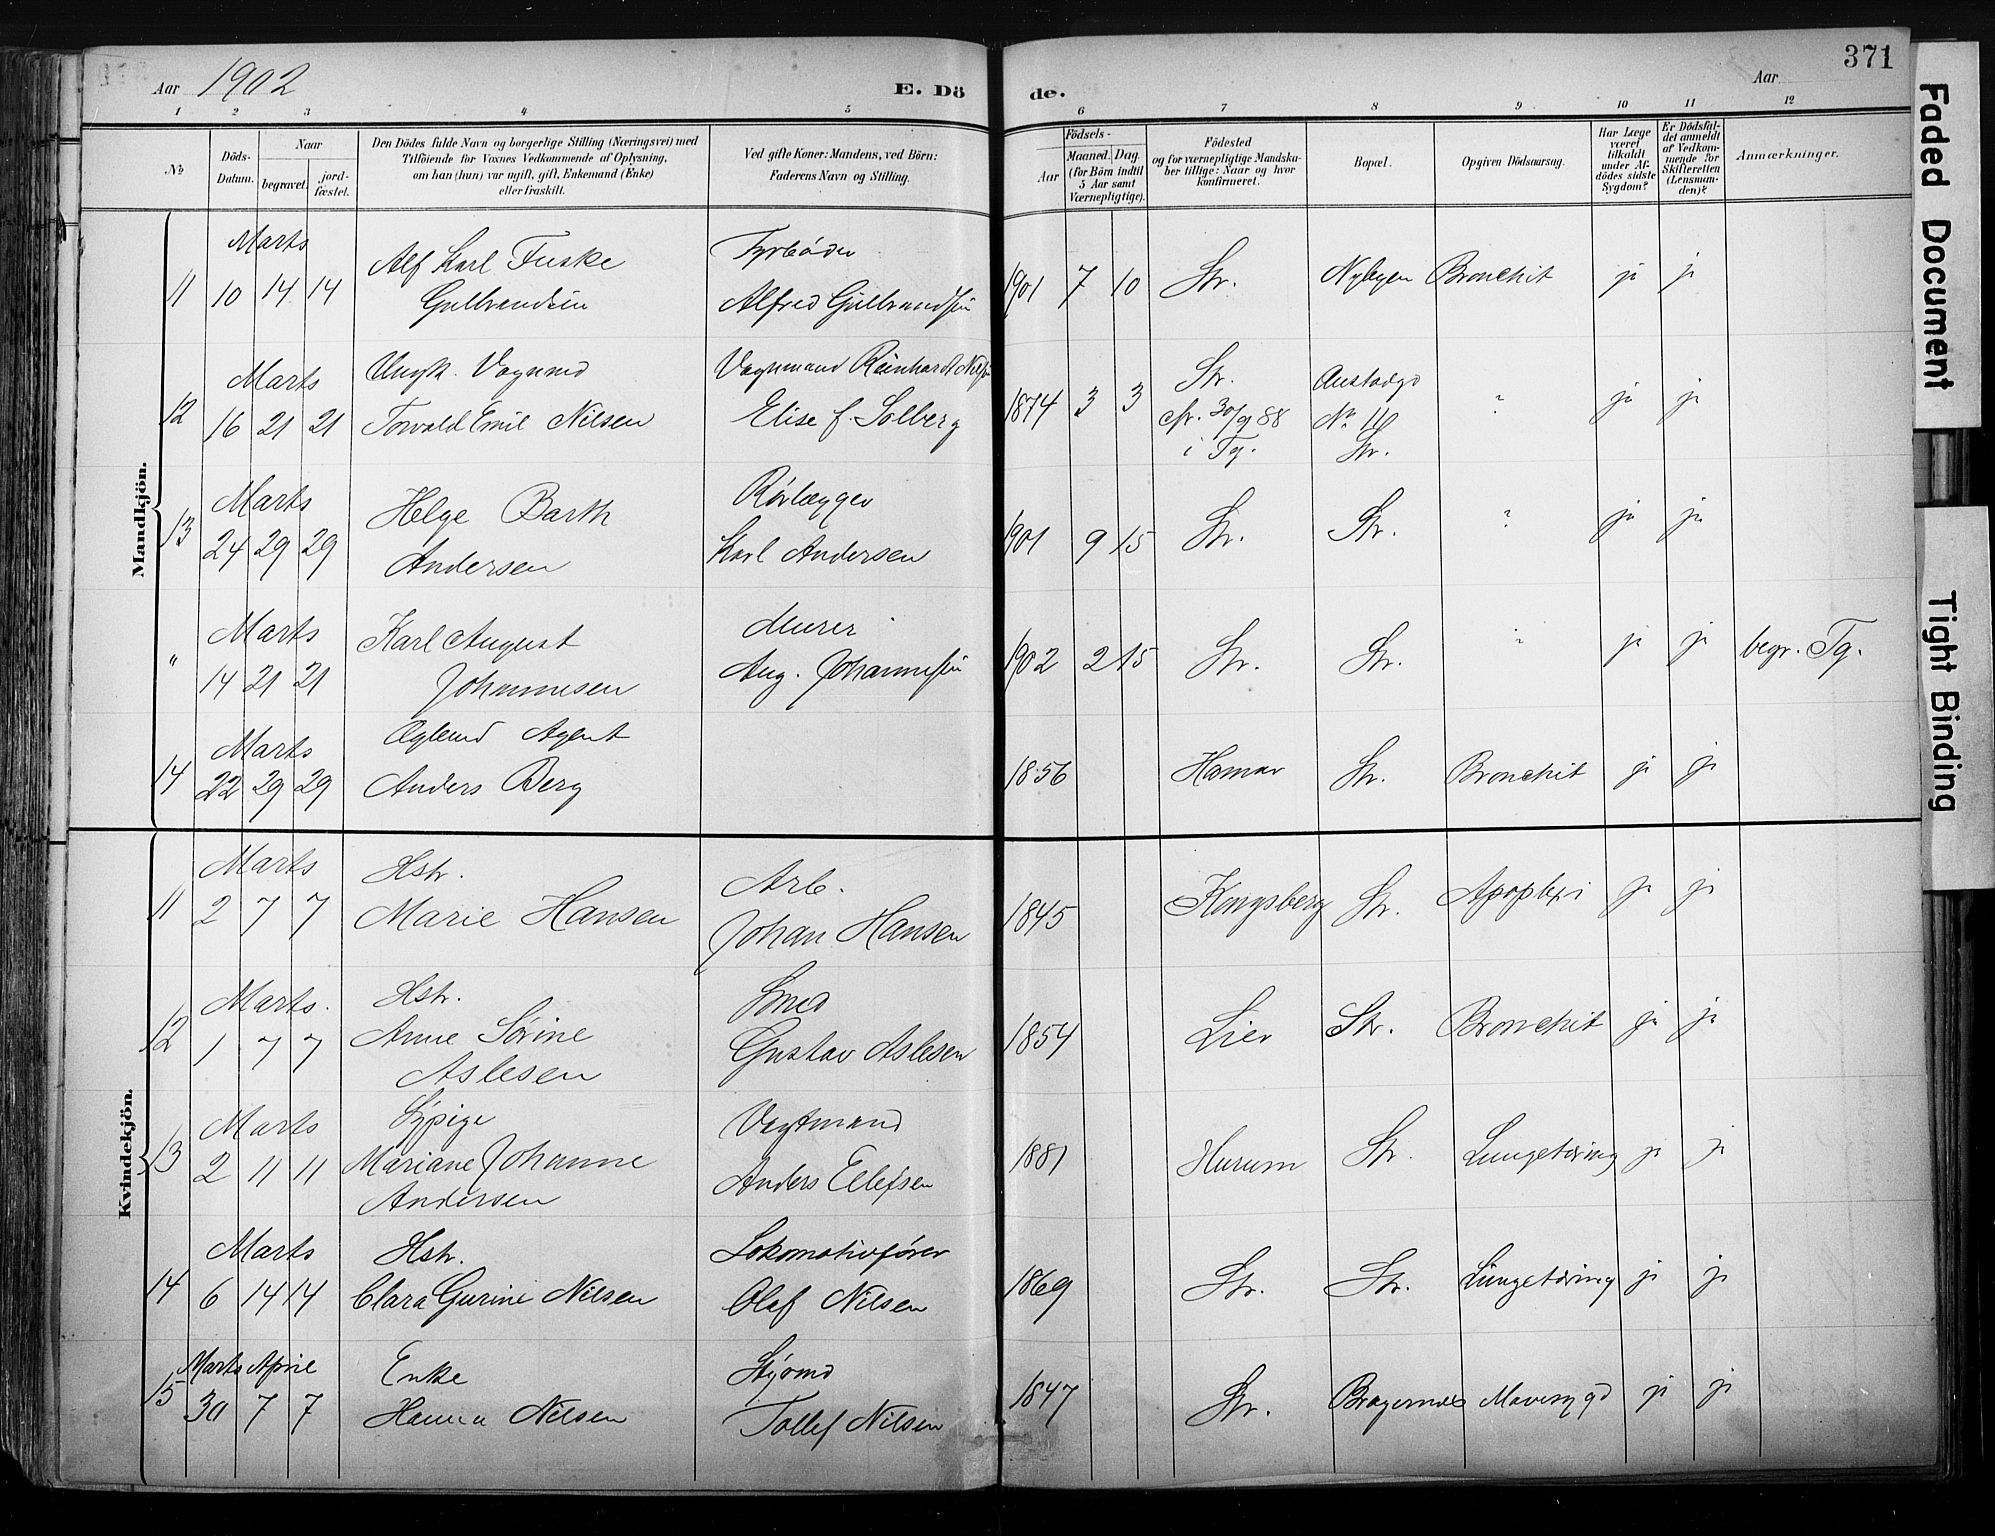 371
Aar 1902
E. Dö de.
Aar
1 2 3 4 5 6 7 8 9 10 11 12
No
Döds-Datum.
Naar
begravet.
jord-fæstet.
Den Dödes fulde Navn og borgerlige Stilling (Næringsvei) med
Tilföiende for Voxnes Vedkommende af Oplysning,
om han (hun) var ugift, gift, Enkemand (Enke)
eller fraskilt.
Ved gifte Koner: Mandens, ved Börn:
Faderens Navn og Stilling.
Födsels-
Aar
Maaned. Dag.
(for Börn indtil
5 Aar samt
Værnepligtige).
Födested
og for værnepligtige Mandska-
ber tillige: Naar og hvor
konfirmeret.
Bopæl.
Opgiven Dödsaarsag.
Har Læge
været
tilkaldt
under Af-
dödes sidste
Sygdom?
Er Dödsfal-
det anmeldt
af Vedkom-
mende for
Skifteretten
(Lensman-
den)?
Anmærkninger.
Mandkjön.
Marts
11 10 14 14 Alf Karl Fuske Gulbrandsen
Fyrbøder
Alfred Gulbrandsen
1901 7 10 Str. Nybyen Bronchit ja ja
Marts
12 16 21 21 Ungk. Vognmd
Torvald Emil Nilsen
Vognmand Reinhardt Nilsen
Elise f. Solberg
1874 3 3 Str.
cfr. 30/9 88
i Tg.
No 10
Str.
? ja ja
Marts
13 24 29 29 Helge Barth
Andersen
Rørlægger
Karl Andersen
1901 9 15 Str. Str. ? ja ja
Marts
" 14 21 21 Karl August
Johannesen
Murer
Aug. Johannesen
1902 2 15 Str. Str. ja ja begr. Tg.
Marts
14 22 29 29 Agent
Anders Berg
1856 Hamar Str. Bronchit ja ja
Kvindekjön.
Marts
11 2 7 7 Hstr.
Marie Hansen
Arb.
Johan Hansen
1845 Kongsberg Str. Apoplexi ja ja
Marts.
12 1 7 7 Hstr.
Anne Sørine
Aslesen
Smed
Gustav Aslesen
1854 Lier Str. Bronchit ja ja
Marts
13 2 11 11 Sypige
Mariane Johanne
Andersen
Vagtmand
Anders Ellefsen
1881 Hurum Str. Lungetæring ja ja
Marts
14 6 14 14 Hstr.
Clara Gurine Nilsen
Lokomotivfører
Olaf Nilsen
1869 Str. Str. Lungetæring ja ja
Marts April
15 30 7 7 Enke
Hanna Nilsen
Styrmd
Tollef Nilsen
1847 Str. Bragernes Mavesygd ja ja
Faded Document
Tight Binding